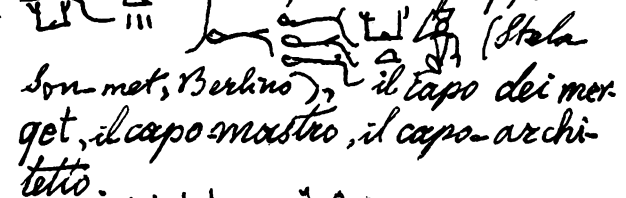 (Stela
Son-met, Berlino), il capo dei mer-
get, il capo mastro, il capo-archi-
tetto.